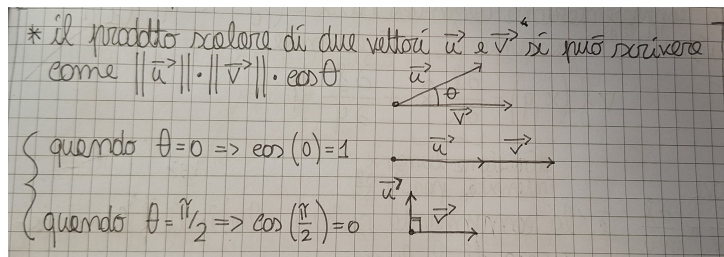 * il prodotto scalare di due vettori u⃗ e v⃗ si può scrivere
come ||u⃗||·||v⃗||·cosθ
u⃗
θ
v⃗
quando θ=0 => cos(0)=1
u⃗ v⃗
quando θ=π/2 => cos(π/2)=0
u⃗
v⃗